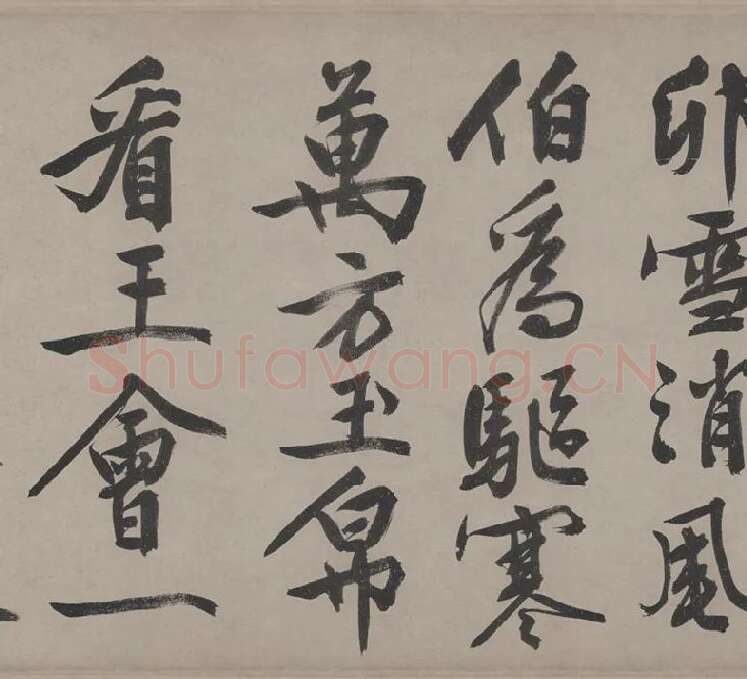 雪消風
伯為驅寒
萬方玉帛
看王會一
Shufawang.CN